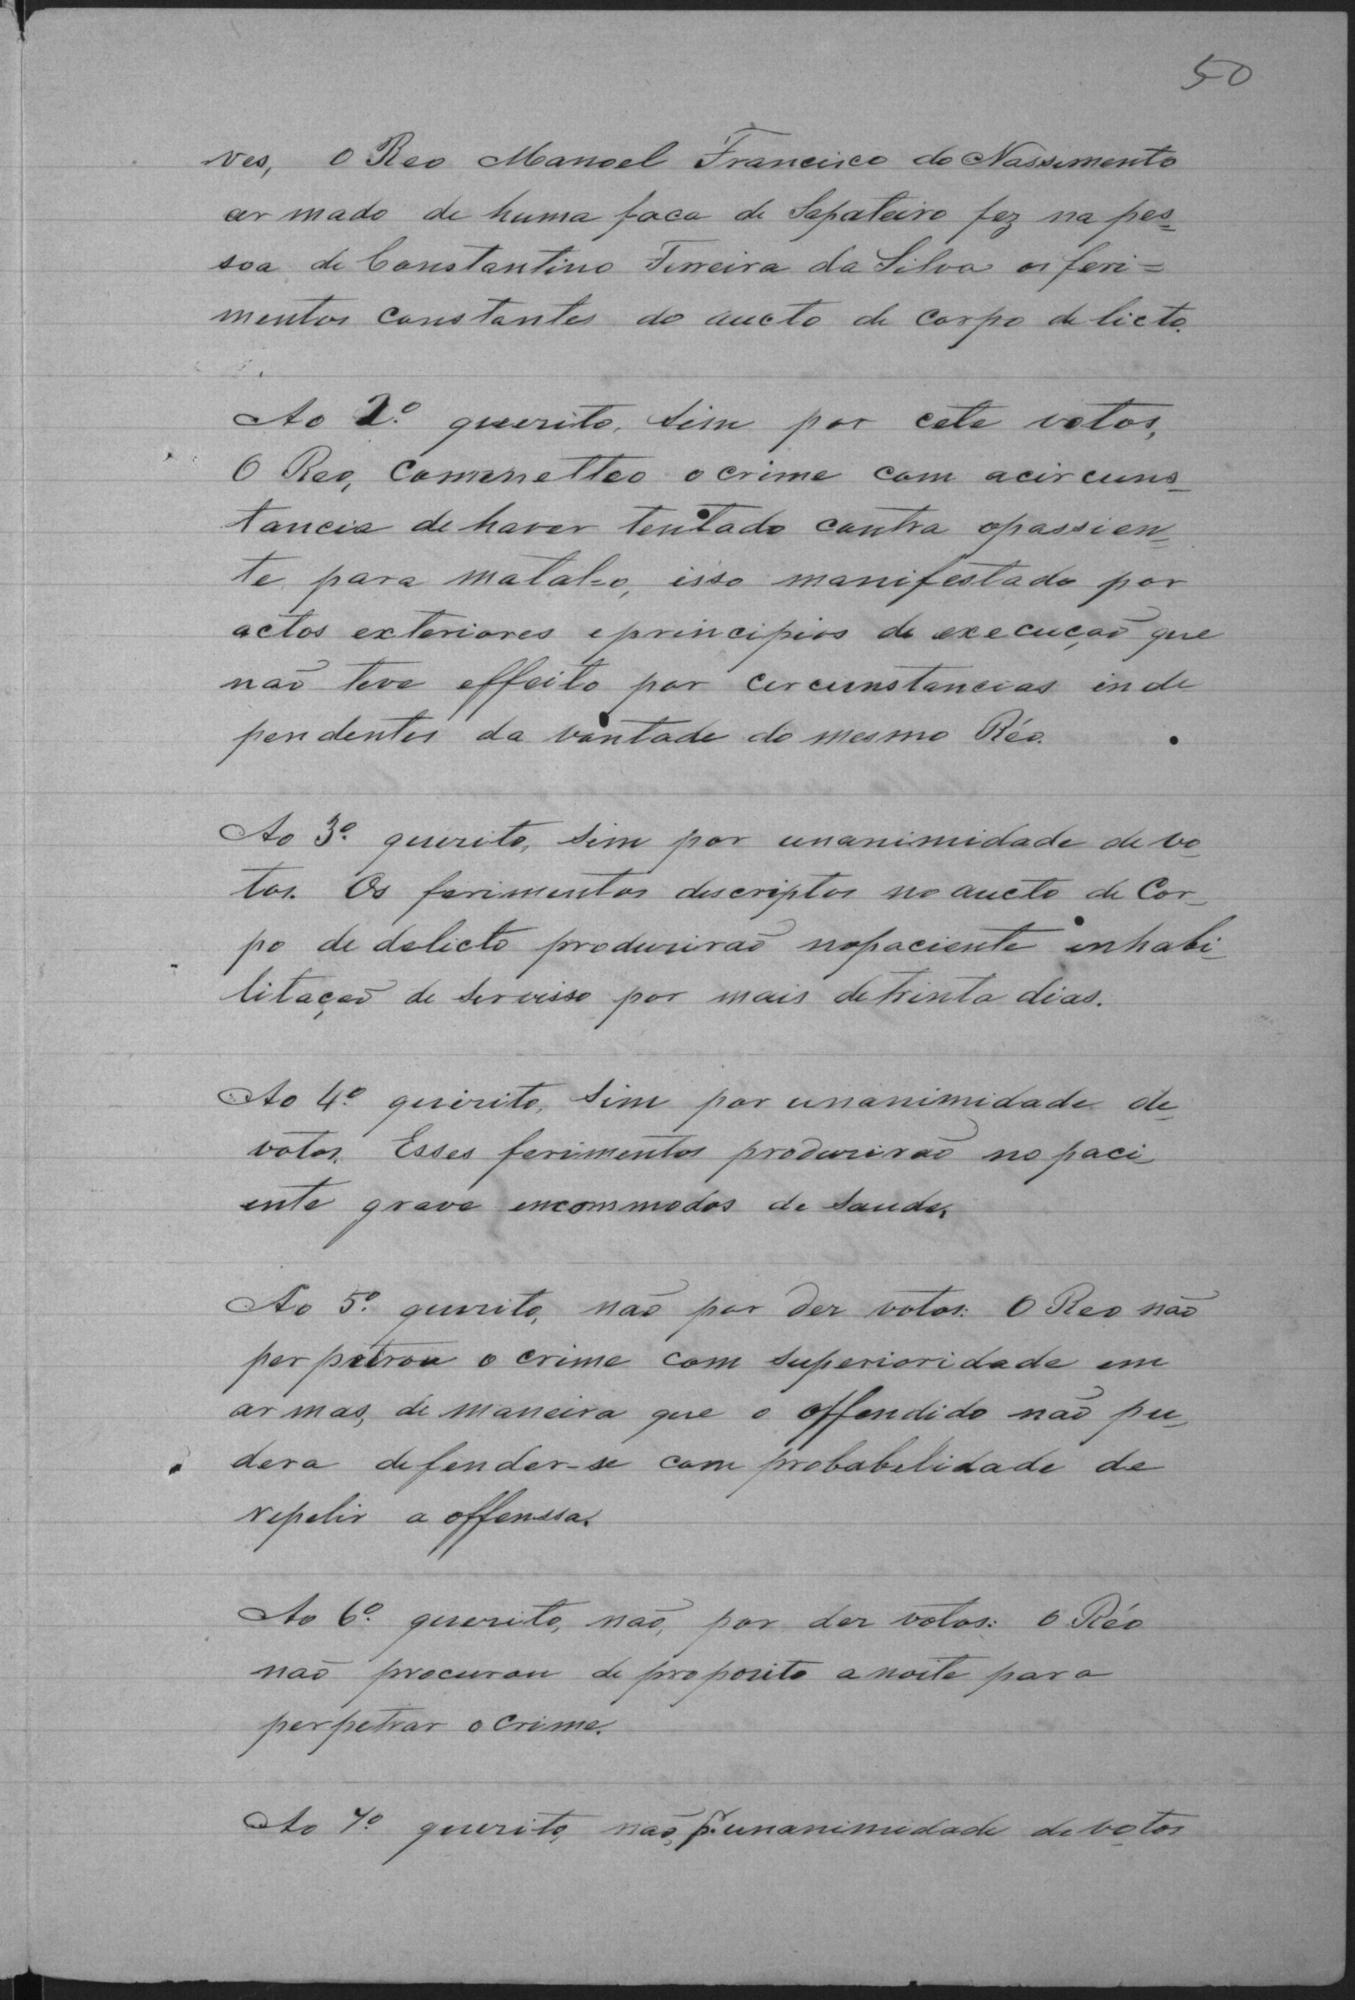 50
ves, O Reo Manoel Francisco do Nassimento
armado de huma faca de Sapateiro fez na pes=
soa de Constantino Ferreira da Silva os feri=
mentos constantes do aucto de corpo delicto.
Ao 2º. querito, Sim por cete votos,
O Reo, Commetteo o crime com acircuns_
tancia de haver tentado contra opassien_
te para matal-o, isso manifestado por
actos exteriores e principios de execução que
não teve effeito por circunstancias inde
pendentes da vontade do mesmo Réo.
Ao 3º. querito, Sim por unanimidade de vo_
tos. Os ferimentos descriptos no aucto de Cor_
po de delicto produsirão nopaciente inhabi_
litação de servisso por mais detrinta dias.
Ao 4º querito, Sim por unanimidade de_
votos. Esses ferimentos produsirão no paci_
ente grave encommodos de Saude.
Ao 5º. querito, não por der votos: O Reo não
perpetrou o crime com superioridade em
armas, de maneira que o offendido não pu_
dera defender-se com probabelidade de
repelir a offenssa.
Ao 6º. querito, não, por der votos: o Réo
não procurou de proposito a noite para
perpetrar o crime.
Ao 7º querito, não, p. unanimidade de votos